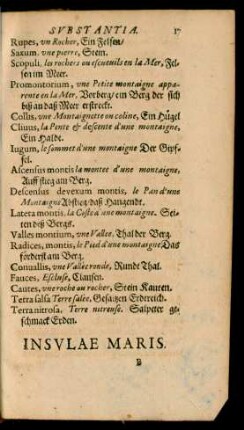 SVBSTANTIA. 17
Rupes, vn Rocher, Ein Felsen/
Saxum. vne pierre, Stein.
Scopuli, les rochers ou escueuils en la Mer, Fel-
sen im Meer.
Promontorium, vne Petite montaigne appa-
rente en la Mer. Vorberg/ ein Berg der sich
biß an daß Meer erstreckt.
Collis, vne Montaignette ou coline, Ein Hügel
Cliuus, la Pente & descente d'une montaigne,
Ein Halde.
Iugum, le sommet d'une montaigne Der Gipf-
fel.
Ascensus montis la montee d'une montaigne,
Auffstieg am Berg.
Descensus devexum montis, le Pan d'une
Montaigne Abstieg/ daß Hangendt.
Latera montis, la Coste d'une montaigne. Sei-
ten deß Bergs.
Valles montium, vne Vallee. Thal der Berg.
Radices, montis, le Pied d'une montaigne Das
förderst am Berg.
Conuallis, vne Vallee ronde, Rundt Thal.
Fauces, Escluse, Clausen.
Cautes, vne roche ou rocher, Stein Kauten.
Terra salsa Terre salée, Gesaltzen Erdereich.
Terra nitrosa. Terre nitreuse. Salpeter ge-
schmack Erden.
INSVLAE MARIS.
B